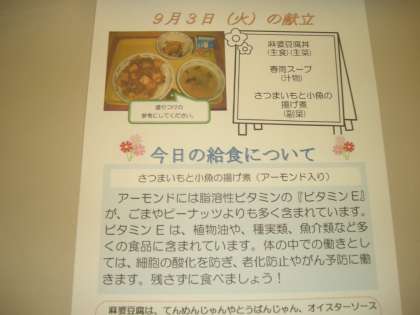 ９月３日（火）の献立
麻婆豆腐丼
（主食）（主菜）
春雨スープ
（汁物）
さつまいもと小魚の
揚げ煮
（副菜）
盛りつけの
参考にしてください。
今日の給食について
さつまいもと小魚の揚げ煮（アーモンド入り）
アーモンドには脂溶性ビタミンの『ビタミンＥ』
が、ごまやピーナッツよりも多く含まれています。
ビタミンＥは、植物油や、種実類、魚介類など多
くの食品に含まれています。体の中での働きとし
ては、細胞の酸化を防ぎ、老化防止やがん予防に働
きます。残さずに食べましょう！
麻婆豆腐は、てんめんじゃんやとうばんじゃん、オイスターソース